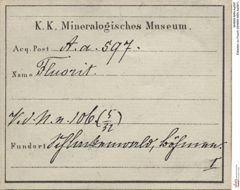 K. K. Mineralogisches Museum.
Acq. Post A.a. 597.
Name Fluorit.
V.d.N.n 106 (5/12)
Fundort Schlackenwald, Böhmen.
I